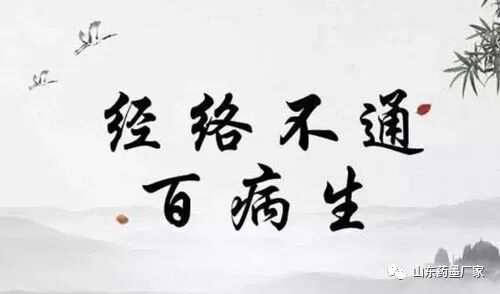 经络不通
百病生
山东药墨厂家